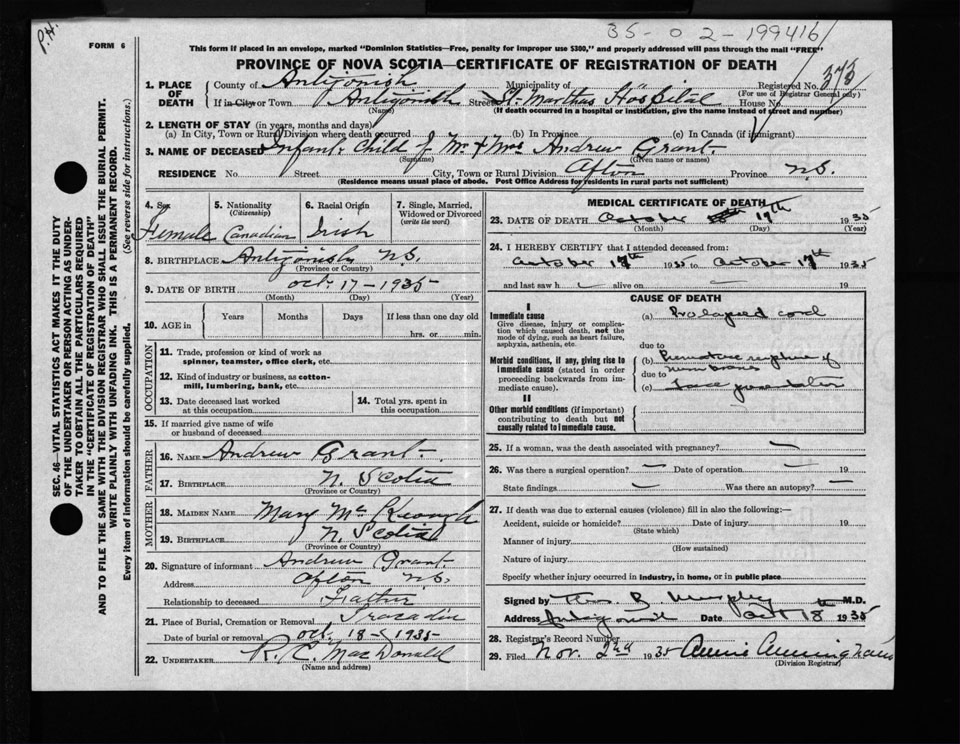 P.H.
35-02-199416
FORM 6
This form if placed in an envelope, marked "Dominion Statistics—Free, penalty for improper use $300," and properly addressed will pass through the mail "FREE"
PROVINCE OF NOVA SCOTIA—CERTIFICATE OF REGISTRATION OF DEATH
1. PLACE OF DEATH
County of Antigonish Municipality of Registered No. 373
(For use of Registrar General only)
If in City or Town Antigonish Street St. Marthas Hospital House No.
(Name) (If death occurred in a hospital or institution, give the name instead of street and number)
2. LENGTH OF STAY (in years, months and days)
(a) In City, Town or Rural Division where death occurred (b) In Province (c) In Canada (if immigrant)
3. NAME OF DECEASED Infant Child of Mr. & Mrs Andrew Grant.
(Surname) (Given name or names)
RESIDENCE No. Street City, Town or Rural Division Afton Province N.S.
(Residence means usual place of abode. Post Office Address for residents in rural parts not sufficient)
4. Sex 5. Nationality (Citizenship) 6. Racial Origin 7. Single, Married, Widowed or Divorced (write the word)
Female Canadian Irish
8. BIRTHPLACE Antigonish N.S.
(Province or Country)
9. DATE OF BIRTH Oct. 17-1935
(Month) (Day) (Year)
10. AGE in Years Months Days If less than one day old
hrs. or min.
OCCUPATION
11. Trade, profession or kind of work as spinner, teamster, office clerk, etc.
12. Kind of industry or business, as cotton-mill, lumbering, bank, etc.
13. Date deceased last worked at this occupation
14. Total yrs. spent in this occupation
15. If married give name of wife or husband of deceased
FATHER
16. NAME Andrew Grant.
17. BIRTHPLACE N. Scotia
(Province or Country)
MOTHER
18. MAIDEN NAME Mary Mc Keough
19. BIRTHPLACE N. Scotia
(Province or Country)
20. Signature of informant Andrew Grant.
Address Afton N.S.
Relationship to deceased Father
21. Place of Burial, Cremation or Removal Tracadie
Date of burial or removal Oct. 18-1935
22. UNDERTAKER R. C. MacDonald
(Name and address)
MEDICAL CERTIFICATE OF DEATH
23. DATE OF DEATH October 17th 1935
(Month) (Day) (Year)
24. I HEREBY CERTIFY that I attended deceased from:
October 17th 1935 to October 17th 1935
and last saw h alive on 19
CAUSE OF DEATH
I
Immediate cause
Give disease, injury or complication which caused death, not the mode of dying, such as heart failure, asphyxia, asthenia, etc.
(a) Prolapsed cord
due to
Morbid conditions, if any, giving rise to immediate cause (stated in order proceeding backwards from immediate cause).
(b) Premature rupture of membranes
due to
(c) Face presentation
II
Other morbid conditions (if important) contributing to death but not causally related to immediate cause.
25. If a woman, was the death associated with pregnancy? —
26. Was there a surgical operation? — Date of operation — 19
State findings Was there an autopsy? —
27. If death was due to external causes (violence) fill in also the following:—
Accident, suicide or homicide? Date of injury 19
(State which)
Manner of injury
(How sustained)
Nature of injury
Specify whether injury occurred in industry, in home, or in public place
Signed by Thos B Murphy M.D.
Address Antigonish Date Oct 18th 1935
28. Registrar's Record Number
29. Filed Nov. 2nd 1935 Annie Cunningham
(Division Registrar)
SEC. 46—VITAL STATISTICS ACT MAKES IT THE DUTY
OF THE UNDERTAKER OR PERSON ACTING AS UNDER-
TAKER TO OBTAIN ALL THE PARTICULARS REQUIRED
IN THE "CERTIFICATE OF REGISTRATION OF DEATH"
AND TO FILE THE SAME WITH THE DIVISION REGISTRAR WHO SHALL ISSUE THE BURIAL PERMIT.
WRITE PLAINLY WITH UNFADING INK. THIS IS A PERMANENT RECORD.
Every item of information should be carefully supplied. (See reverse side for instructions.)